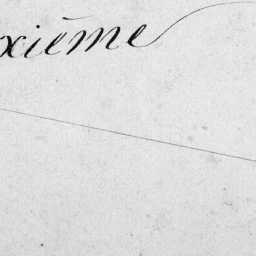 xième